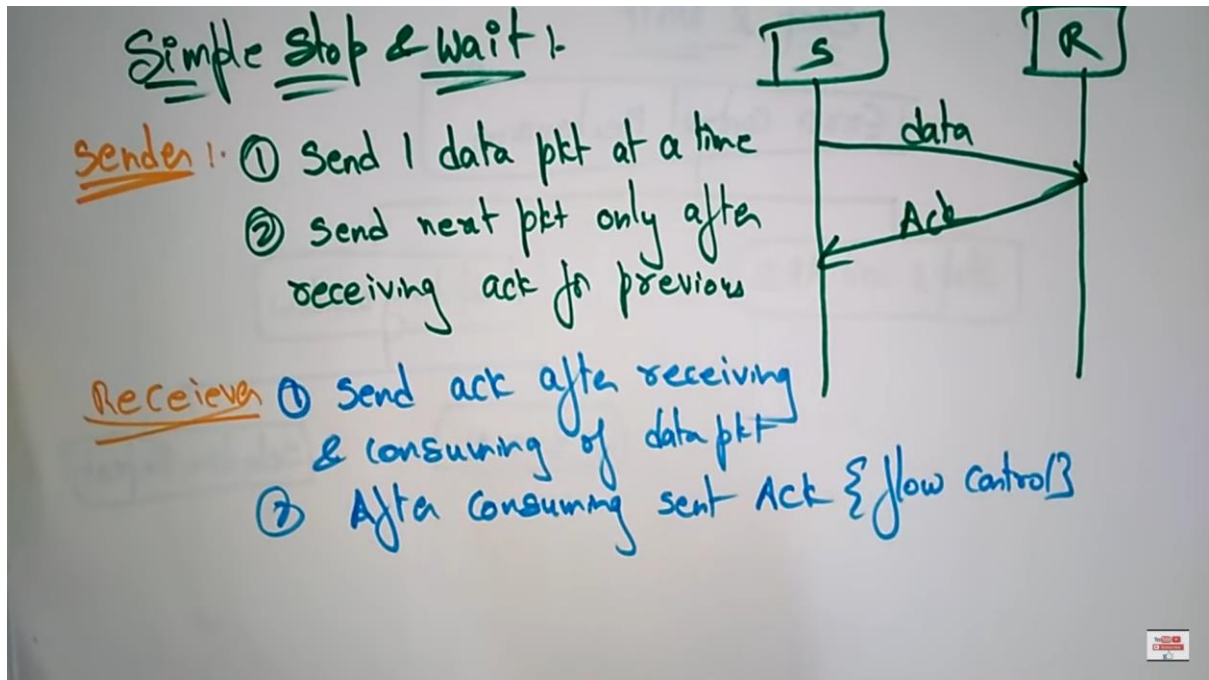 Simple Stop & Wait :-
S
R
Sender :- ① Send 1 data pkt at a time
data
② Send next pkt only after
receiving ack for previous
Ack
Receiever ① Send ack after receiving
& consuming of data pkt
② After consuming sent Ack { flow control }
YouTube
Subscribe